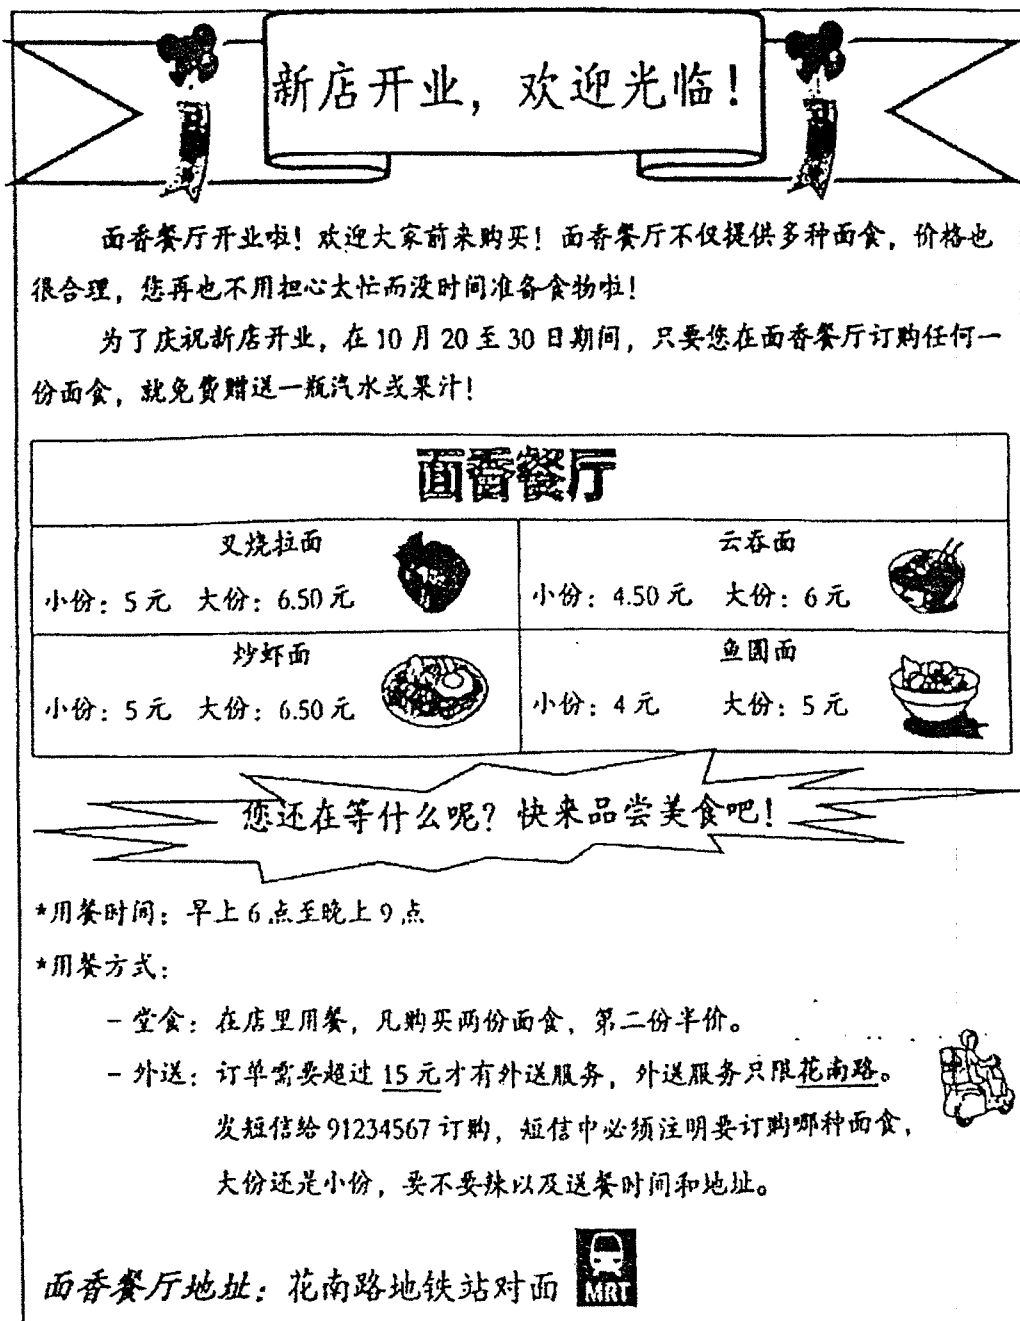 新店开业，欢迎光临！
面香餐厅开业啦！欢迎大家前来购买！面香餐厅不仅提供多种面食，价格也
很合理，您再也不用担心太忙而没时间准备食物啦！
为了庆祝新店开业，在10月20至30日期间，只要您在面香餐厅订购任何一
份面食，就免费赠送一瓶汽水或果汁！
面香餐厅
叉烧拉面
小份：5元 大份：6.50元
云吞面
小份：4.50元 大份：6元
炒虾面
小份：5元 大份：6.50元
鱼圆面
小份：4元 大份：5元
您还在等什么呢？快来品尝美食吧！
*用餐时间：早上6点至晚上9点
*用餐方式：
- 堂食：在店里用餐，凡购买两份面食，第二份半价。
- 外送：订单需要超过15元才有外送服务，外送服务只限花南路。
发短信给91234567订购，短信中必须注明要订购哪种面食，
大份还是小份，要不要辣以及送餐时间和地址。
面香餐厅地址：花南路地铁站对面
MRT